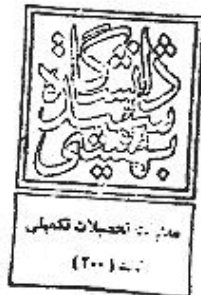 دانشگاه
شهید
بهشتی
تحصیلات تکمیلی
(۲۰۰)